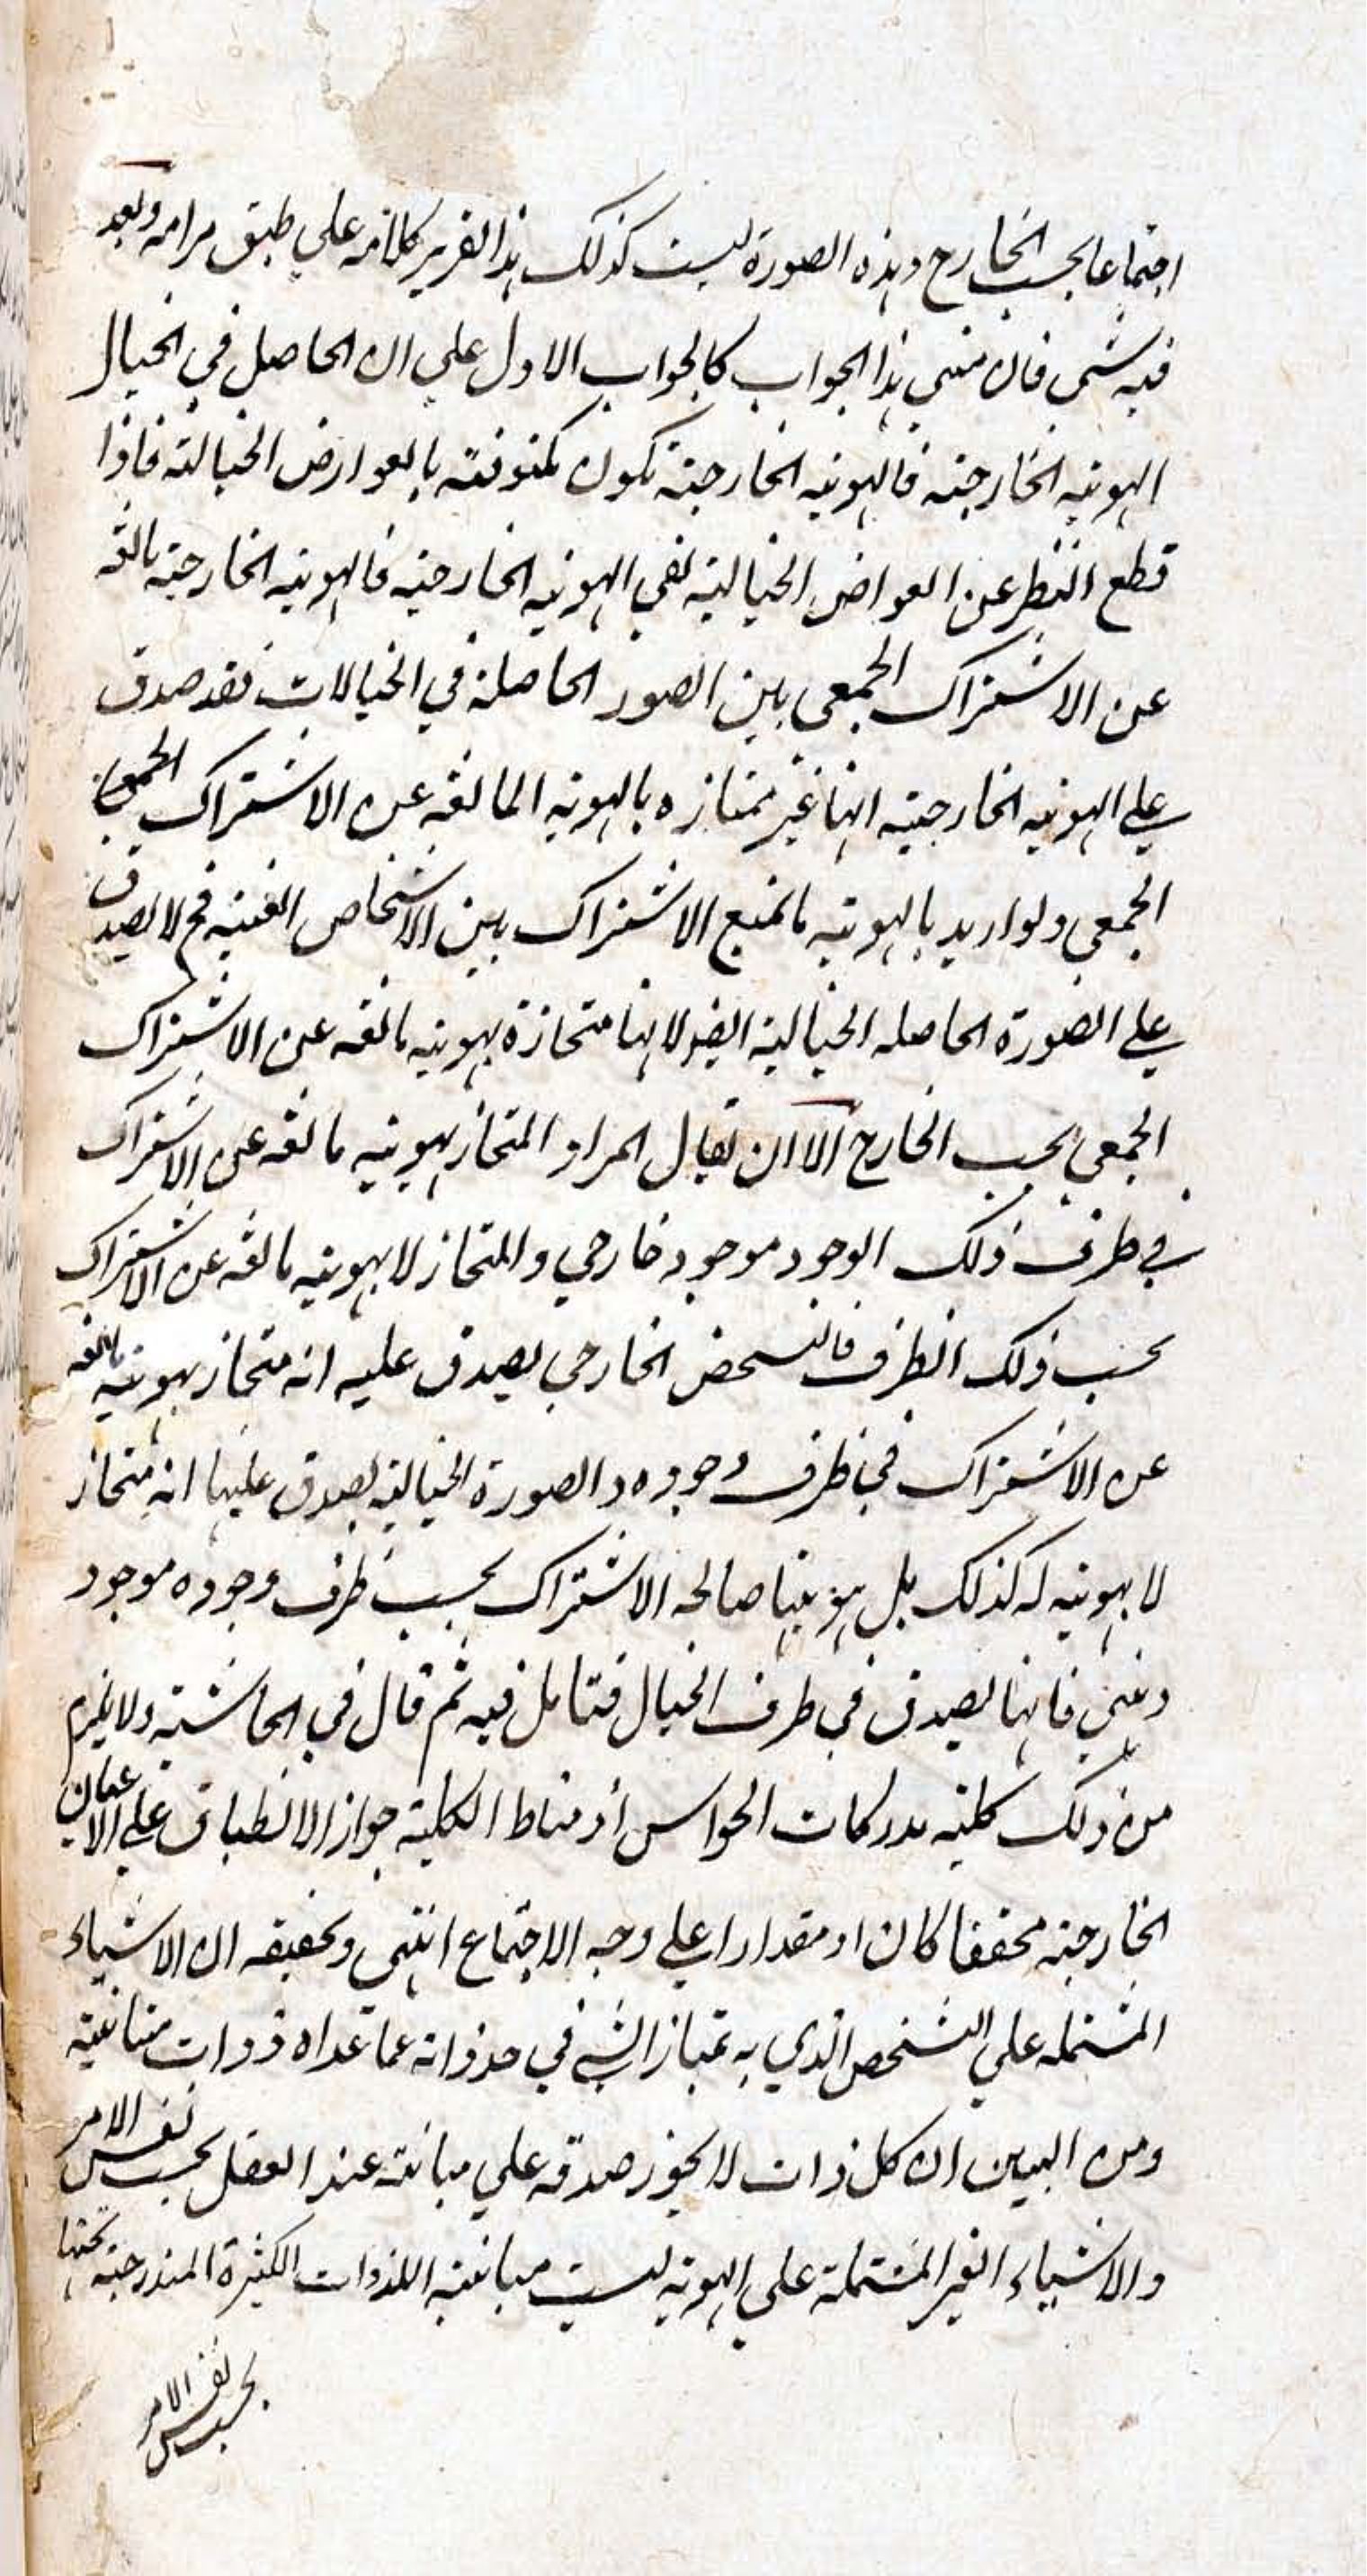 اجتماعا بحسب الخارج وهذه الصورة ليست كذلك هذا تقرير كلامه علي طبق مرامه وبعد
فيه شي فان مبني هذا الجواب كالجواب الاول علي ان الحاصل في الخيال
الهويه الخارجيه فالهويه الخارجية تكون مكنونفته بالعوارض الخيالته فاذا
قطع النظر عن العواض الخياليه بقي الهويه الخارجيه فالهويه الخارجيه مانعه
عن الاشتراك الجمعي بين الصور الحاصلة في الخيالات فقد صدق
علي الهويه الخارجيه انها غير ممتازه بالهويه المانعه عن الاشتراك الجمعي
الجمعي ولو اريد بالهويه ما يمنع الاشتراك بين الاشخاص العينيه فح لا يصدق
علي الصورة الحاصله الخياليه ايضا لانها متحازة بهويه مانعه عن الاشتراك
الجمعي بحسب الخارج الا ان يقال المراد المتحاز بهويه مانعه عن الاشتراك
في ظرف ذلك الوجود موجود خارجي والمتحاز لا بهويه مانعه عن الاشتراك
بحسب ذلك الظرف فالشخص الخارجي يصدق عليه انه متحاز بهويه مانعه
عن الاشتراك في ظرف وجوده والصورة الخياليه يصدق عليها انه متحاز
لا بهويه له كذلك بل هويتها صالحه الاشتراك بحسب ظرف وجوده موجود
ذهني فانها يصدق في ظرف الخيال فتامل فيه ثم قال في الحاشيته ولا يلزم
من ذلك كليه مدركات الحواس اذ مناط الكلية جواز الانطباق علي الاعيان
الخارجيه محققا كان او مقدارا علي وجه الاجتماع انتهي وتحقيقه ان الاشياء
المشتمله علي الشخص الذي به يمتاز الشي في حد ذاته عما عداه ذوات متباينه
ومن البين ان كل ذات لا يجوز صدقه علي مباينه عند العقل بحسب نفس الامر
والاشياء الغير المشتملة علي الهويه ليست مباينه اللذوات الكثيرة المندرجته تحتها
بحسب نفس الامر